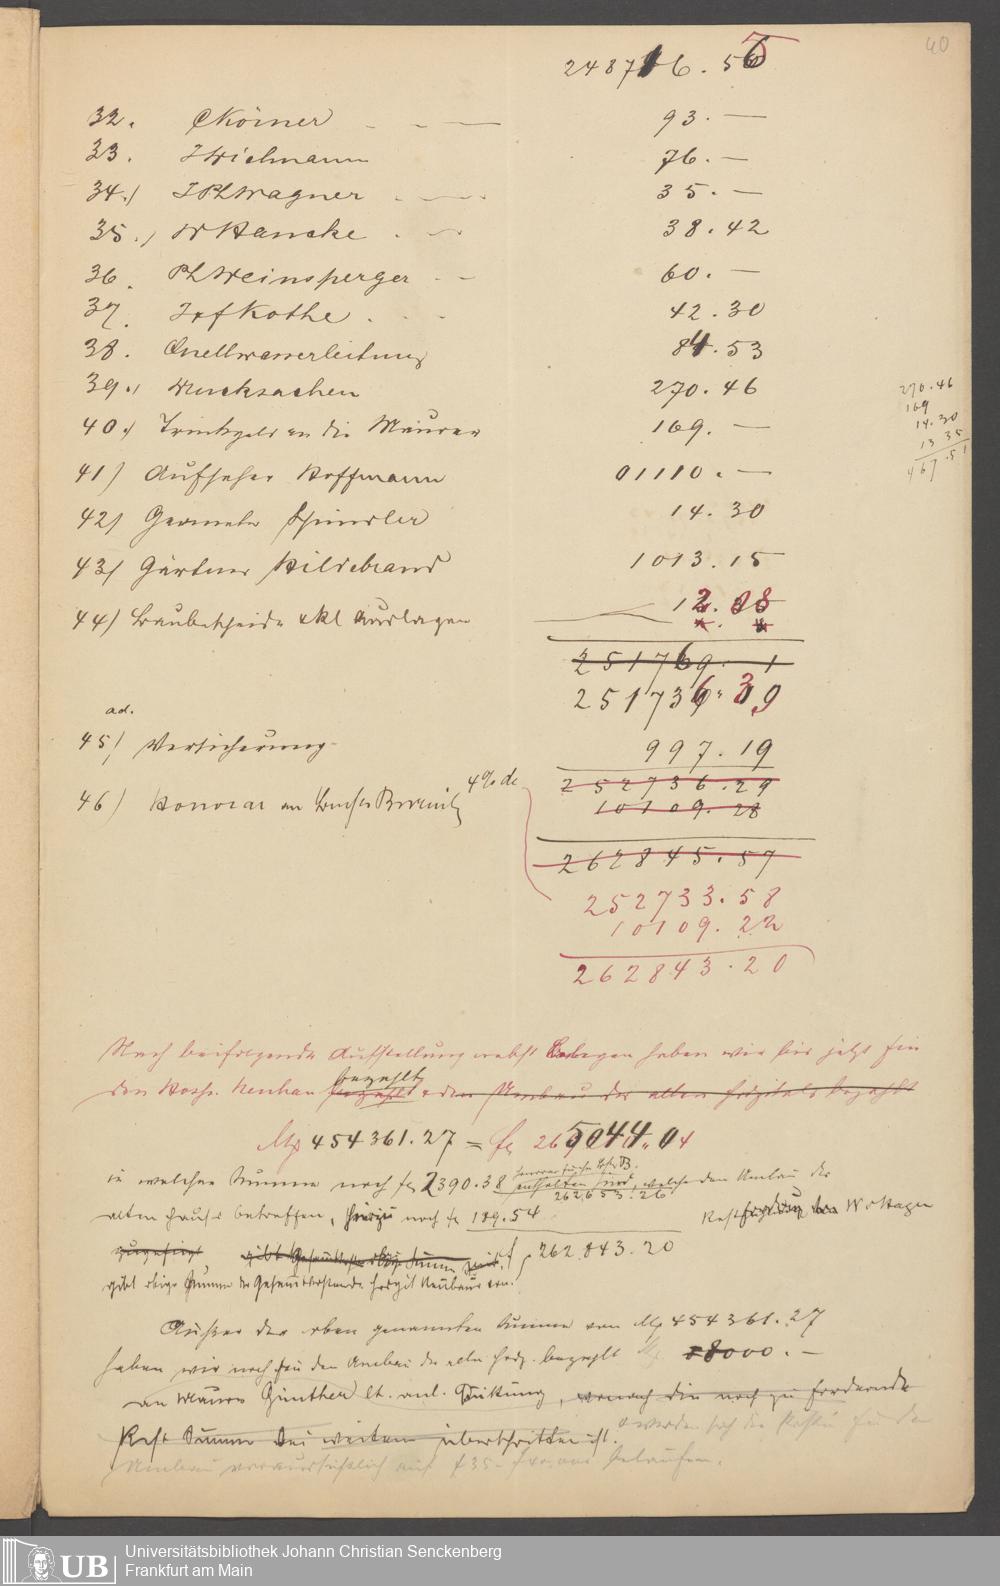 40
248716.56
32. CKörner 93.—
33. JWichmann 76.—
34.) JPhWagner 35.—
35.) WHancke 38.42
36. PhWeinsperger 60.—
37. Kothe 42.30
38. Quellwasserleitung 84.53
39.) Drucksachen 270.46
40.) Trinkgeld an die Maurer 169.—
41) Aufseher Hoffmann 1110.—
42) Geometer Spindler 14.30
43) Gärtner Hildebrand 1013.15
44) Baubescheide Auslagen 12.
270.46
169
14.30
13 35
467.51
251769. 1
251736.39
ad.
45) Versicherung 997.19
252736.29
46) Honorar an 4% de 10109.28
262845.57
252733.58
10109.22
262843.20
Nach beifolgender Aufstellung nebst Belegen haben wir bis jetzt für
den Hosp. Neubau bezahlt & den Umbau des alten Hospitals bezahlt
Mk 454361.27 = 04
in welcher Summe noch fl 2390.38 enthalten sind, welche den Umbau des
262653.26
alten Hauses betreffen, hierzu noch fl 189.54
Restforderung W Hagen
zugefügt gibt 262.843.20
gibt obige Summe der Gesammtkosten des Hospital Neubaues
Außer der oben genannten Summe von Mk 454361.27
haben wir noch für den Umbau des alten Hosp. bezahlt 8000.—
an Maurer Günther lt. anl. Quittung, wonach die noch zu fordernde
Rest Summe bei weitem überschritten ist. & werden sich die Kosten für den
Umbau voraussichtlich auf belaufen.
UB
Universitätsbibliothek Johann Christian Senckenberg
Frankfurt am Main